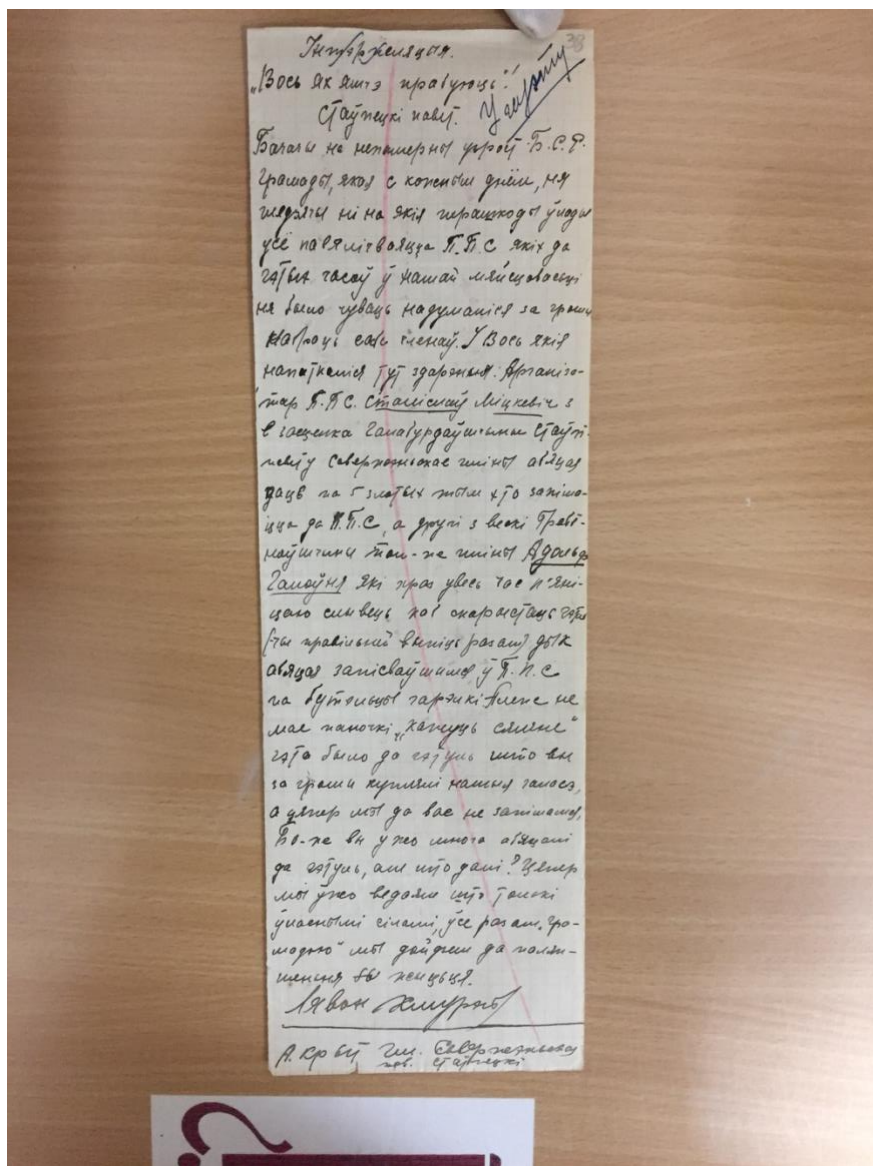 38
Інтэрпеляцыя.
„Вось як яшчэ працуюць“!
Стаўпецкі павіт.
Бачачы на непомерны ўзрост Б.С.Р.
Грамады, якая с кожным днём, ня
глядзячы ні на якія перашкоды ўлады
усё павялічваяцца П.П.С якіх да
гэтых часоў ў нашай мяйсцовасьці
не было чуваць надумаліся за грошы
набраць сабе членаў. І Вось якія
напаткаліся тут здарэньня: Арганіза-
тар П.П.С. Станіслаў Міцкевіч з
засценка Стаўп.
павіту гміны абяцая
даць па 5 злотых тым хто запіша-
іцца да П.П.С, а другі з вёскі
той-же гміны Адольф
які праз увесь час п'яні-
цаю слывець каб скарыстаць гэтым
выпіць разам) дык
абяцая запісваўшымся ў П.П.С
па бутэльцы гарэлкі Алеж не
мае паночкі „кажуць сяляне“
гэта было да гэтуль што вы
за грошы куплялі нашыя галасэ,
а цяпер мы да вас не запішамся,
Бо-ж вы ужо многа абяцалі
да гэтуль, але што далі? Цяпер
мы ўжо ведаям што толькі
ўласнымі сіламі, ўсе разам, „гра-
мадою“ мы дойдзем да палеп-
шэньня жыцьця.
Лявон Хмурэты
пав. Стаўпецкі